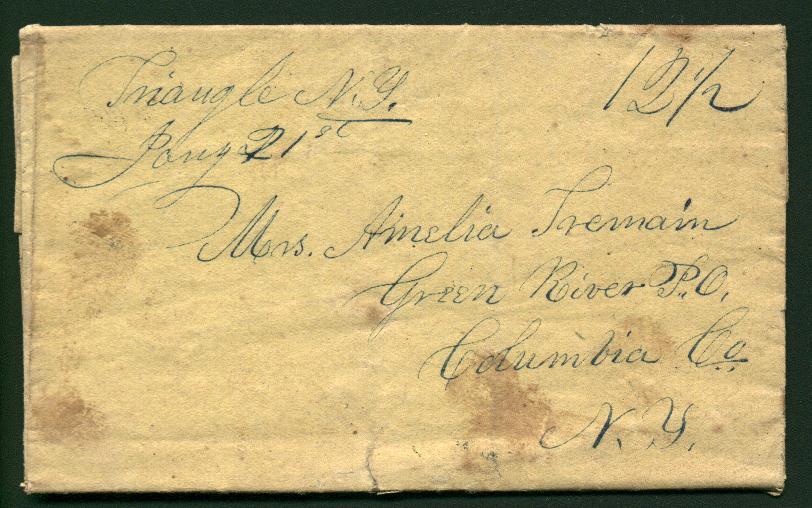 Triangle N.Y.
12 1/2
Jany 21st
Mrs. Amelia Tremain
Green River P.O.
Columbia Co.
N.Y.